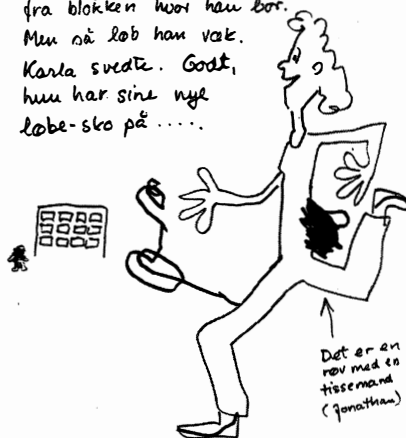 fra blokken hvor han bor.
Men så løb han væk.
Karla svedte. Godt,
hun har sine nye
løbe-sko på .....
Det er en
røv med en
tissemand
(Jonathan)